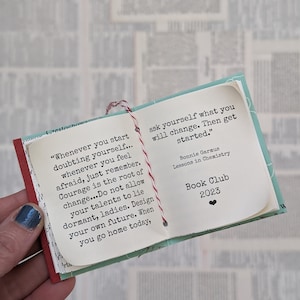 "Whenever you start
doubting yourself...
whenever you feel
afraid, just remember.
Courage is the root of
change...Do not allow
your talents to lie
dormant, ladies. Design
your own future. When
you go home today,
ask yourself what you
will change. Then get
started."
Bonnie Garmus
Lessons in Chemistry
Book Club
2023